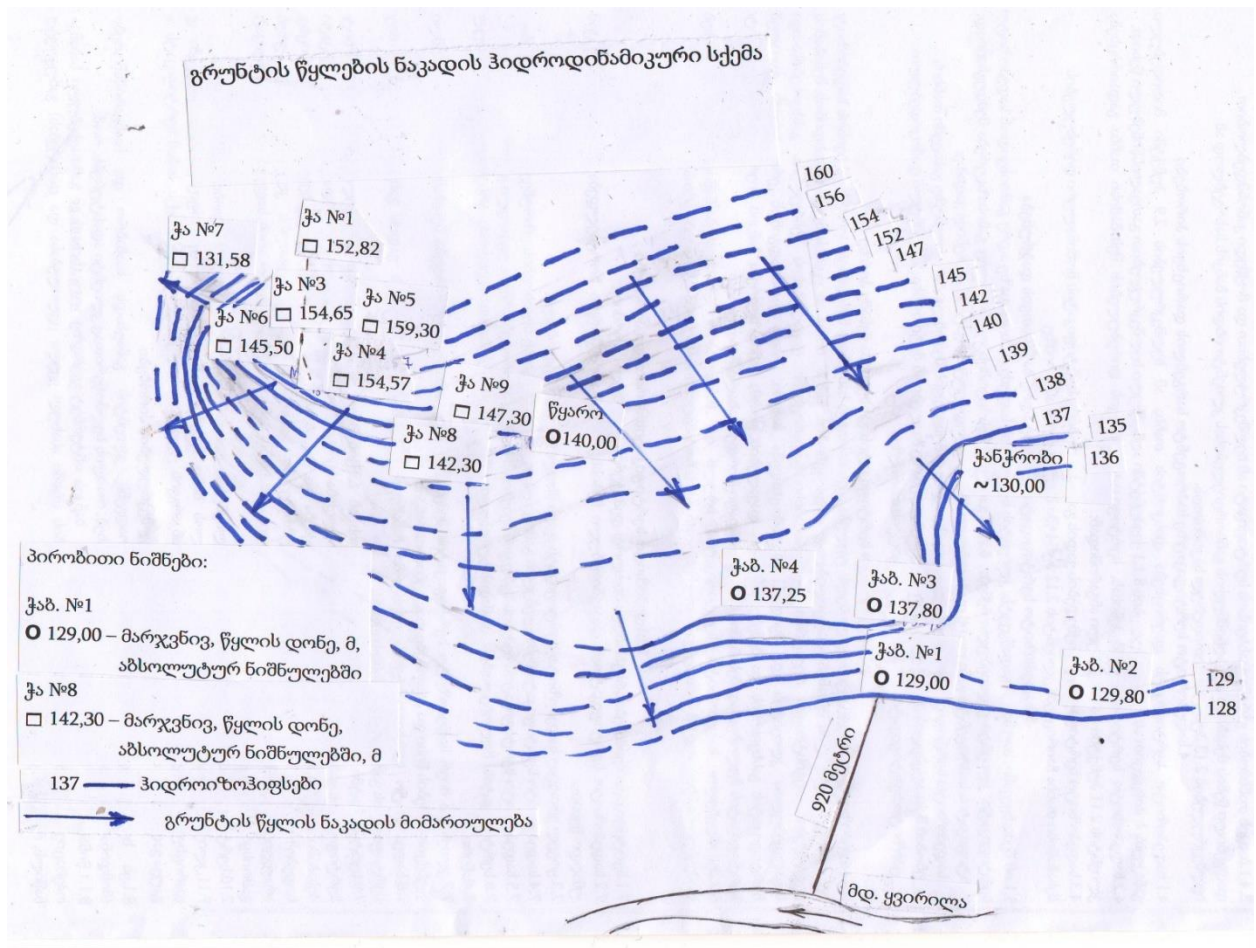 გრუნტის წყლების ნაკადის ჰიდროდინამიკური სქემა
160
156
154
152
147
145
142
140
139
138
137
135
136
ჭა №7
131,58
ჭა №1
152,82
ჭა №3
154,65
ჭა №5
159,30
ჭა №6
145,50
ჭა №4
154,57
ჭა №9
147,30
წყარო
O140,00
ჭა №8
142,30
ჭანჭრობი
~130,00
ჭაბ. №4
O 137,25
ჭაბ. №3
O 137,80
ჭაბ. №1
O 129,00
ჭაბ. №2
O 129,80
129
128
პირობითი ნიშნები:
ჭაბ. №1
O 129,00 – მარჯვნივ, წყლის დონე, მ,
აბსოლუტურ ნიშნულებში
ჭა №8
142,30 – მარჯვნივ, წყლის დონე,
აბსოლუტურ ნიშნულებში, მ
137 ჰიდროიზოჰიფსები
გრუნტის წყლის ნაკადის მიმართულება
920 მეტრი
მდ. ყვირილა